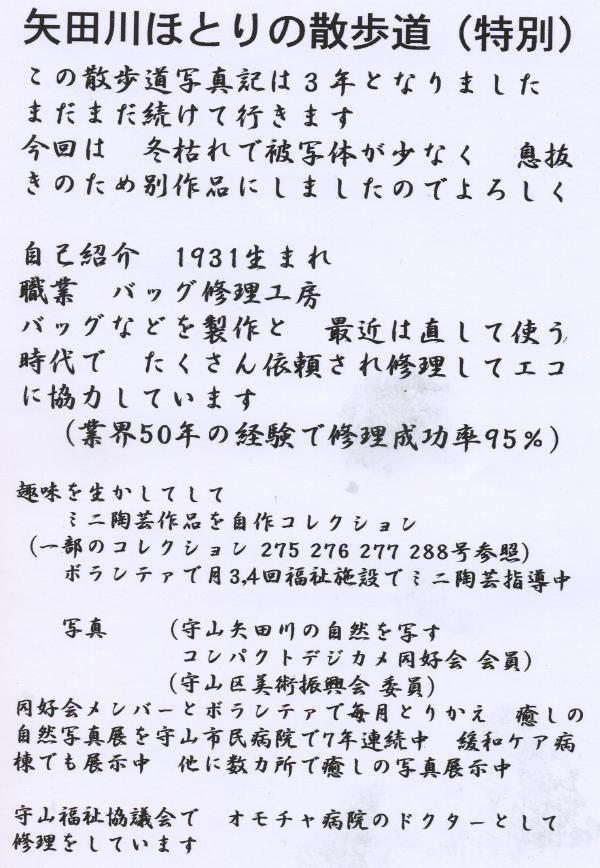 矢田川ほとりの散歩道（特別）
この散歩道写真記は３年となりました
まだまだ続けて行きます
今回は　冬枯れで被写体が少なく　息抜
きのため別作品にしましたのでよろしく
自己紹介　1931生まれ
職業　バッグ修理工房
バッグなどを製作と　最近は直して使う
時代で　たくさん依頼され修理してエコ
に協力しています
（業界50年の経験で修理成功率95％）
趣味を生かしてして
ミニ陶芸作品を自作コレクション
（一部のコレクション 275 276 277 288号参照）
ボランティァで月3,4回福祉施設でミニ陶芸指導中
写真　（守山矢田川の自然を写す
コンパクトデジカメ同好会 会員）
（守山区美術振興会 委員）
同好会メンバーとボランティァで毎月とりかえ　癒しの
自然写真展を守山市民病院で7年連続中　緩和ケア病
棟でも展示中　他に数カ所で癒しの写真展示中
守山福祉協議会で　オモチャ病院のドクターとして
修理をしています